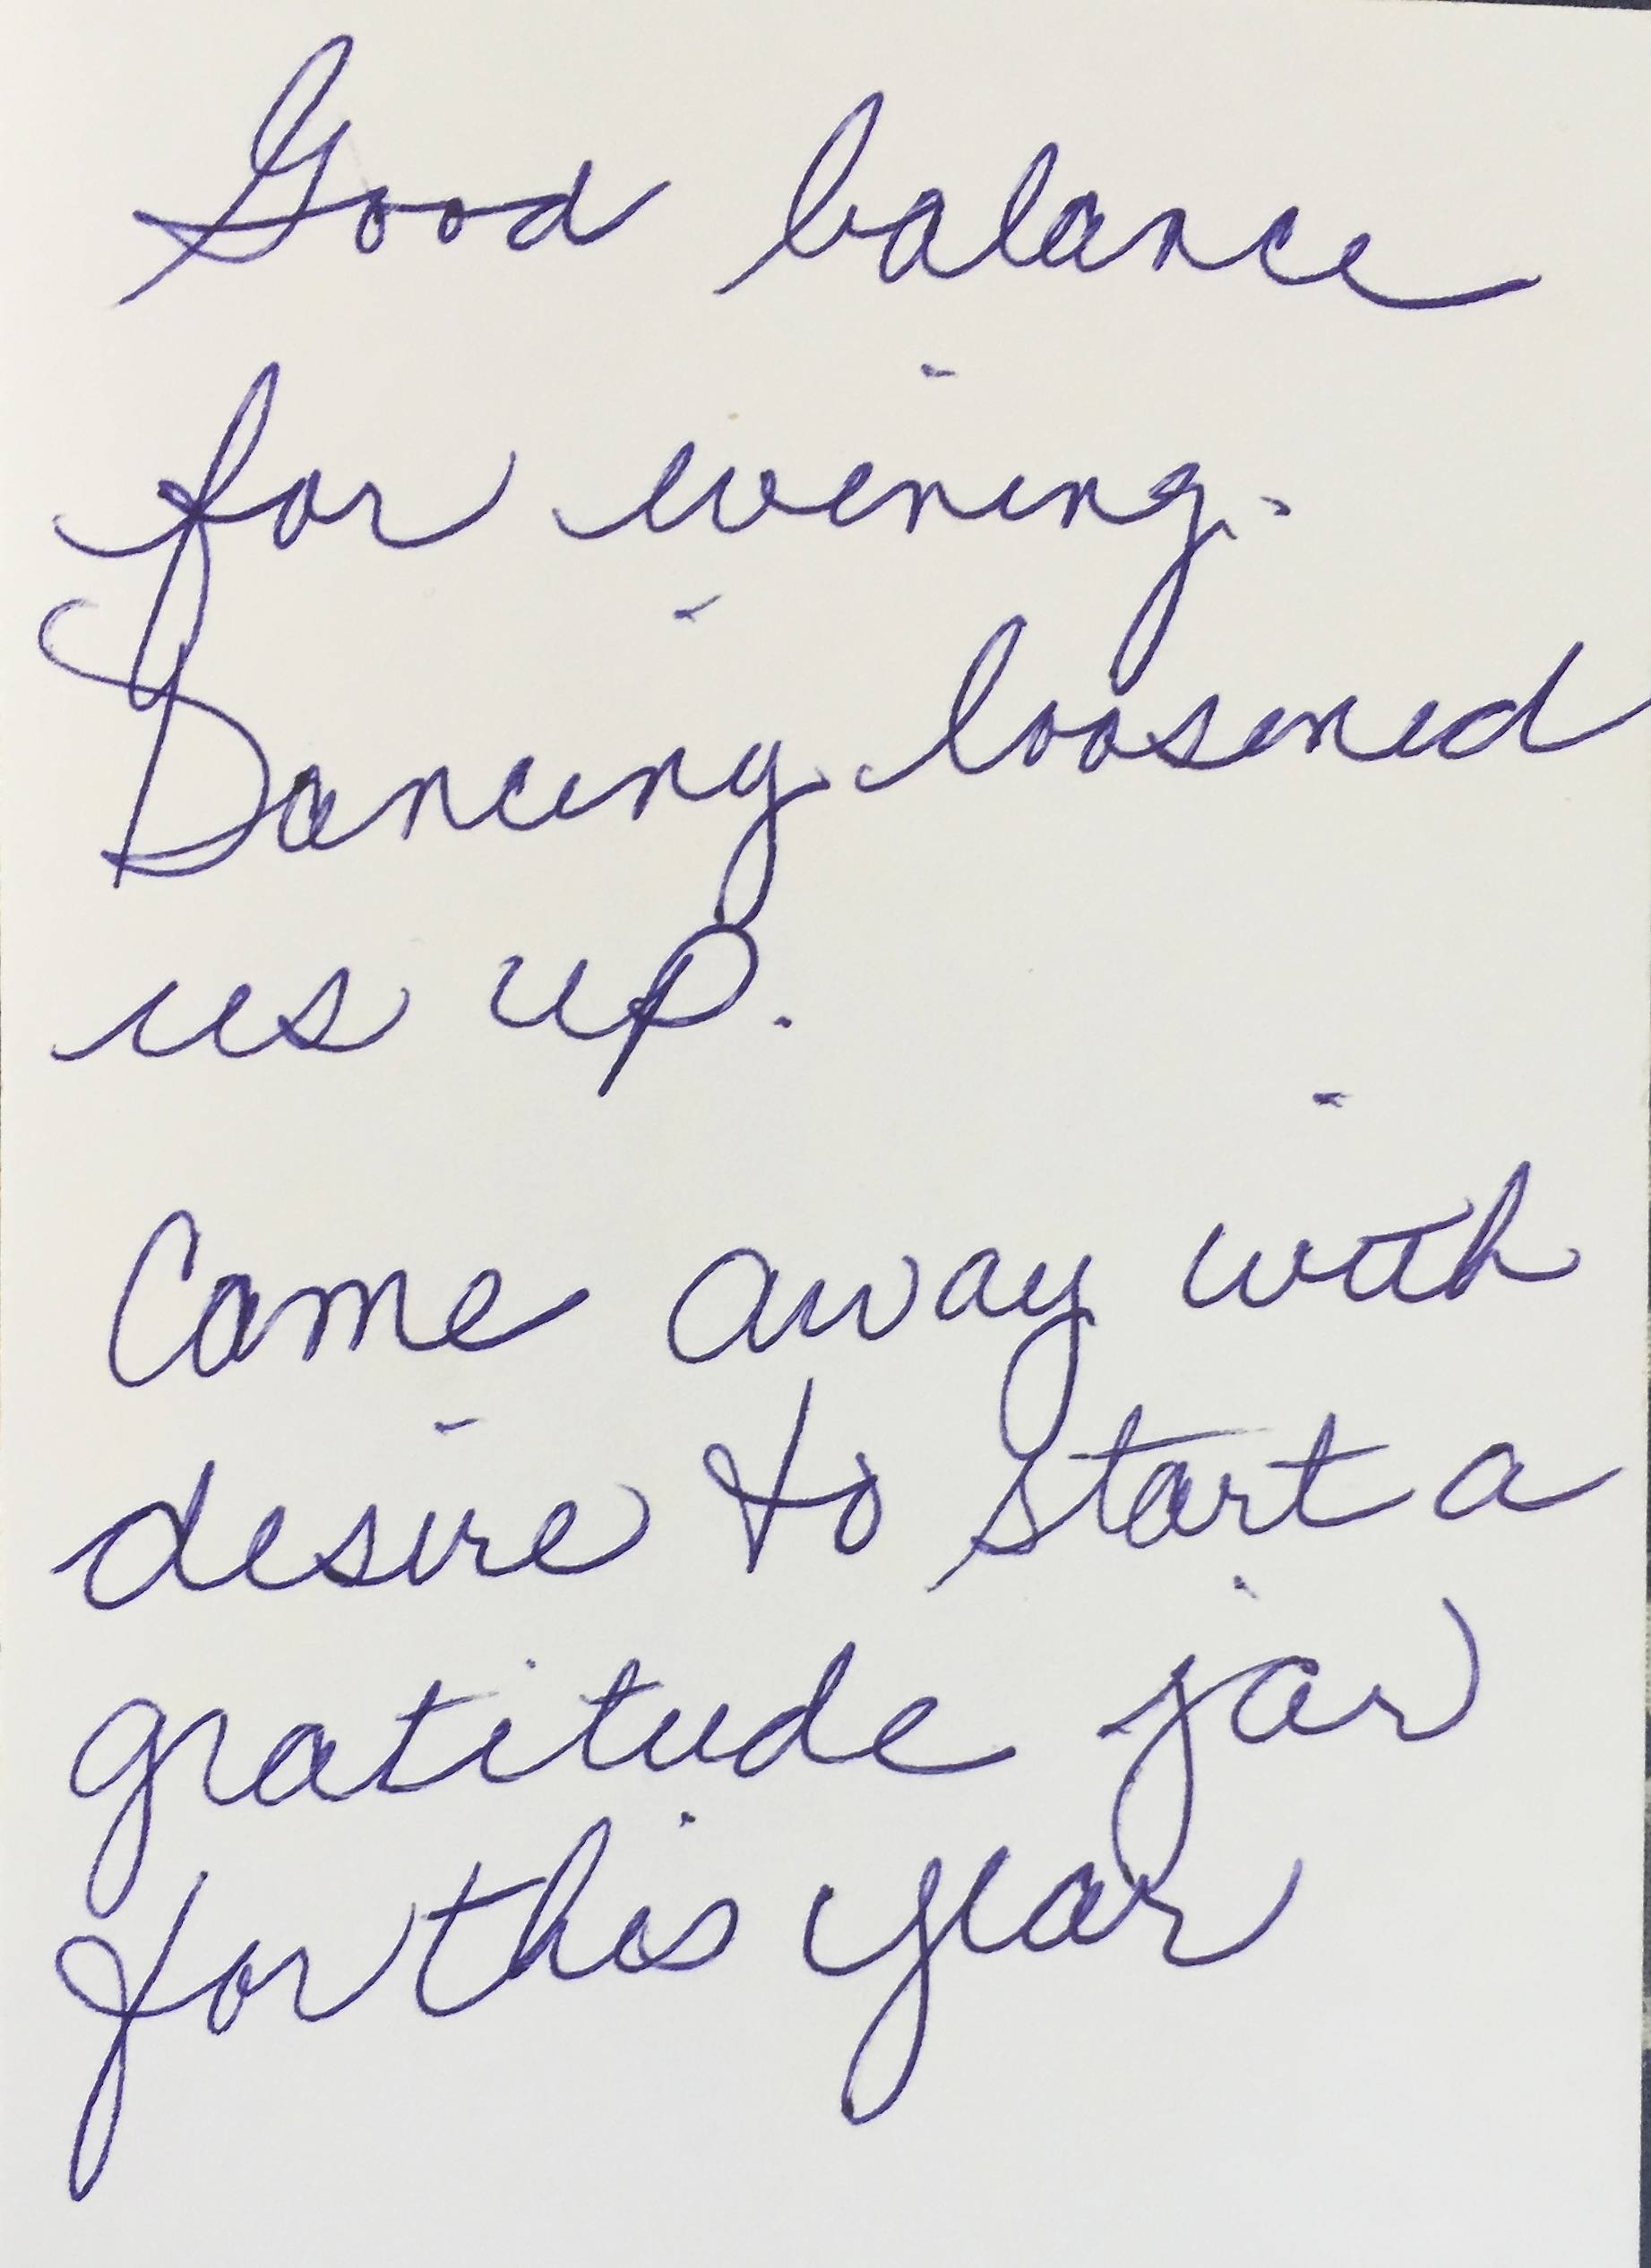 Good balance
for evening.
Dancing loosened
us up.
Came away with
desire to start a
gratitude jar
for this year